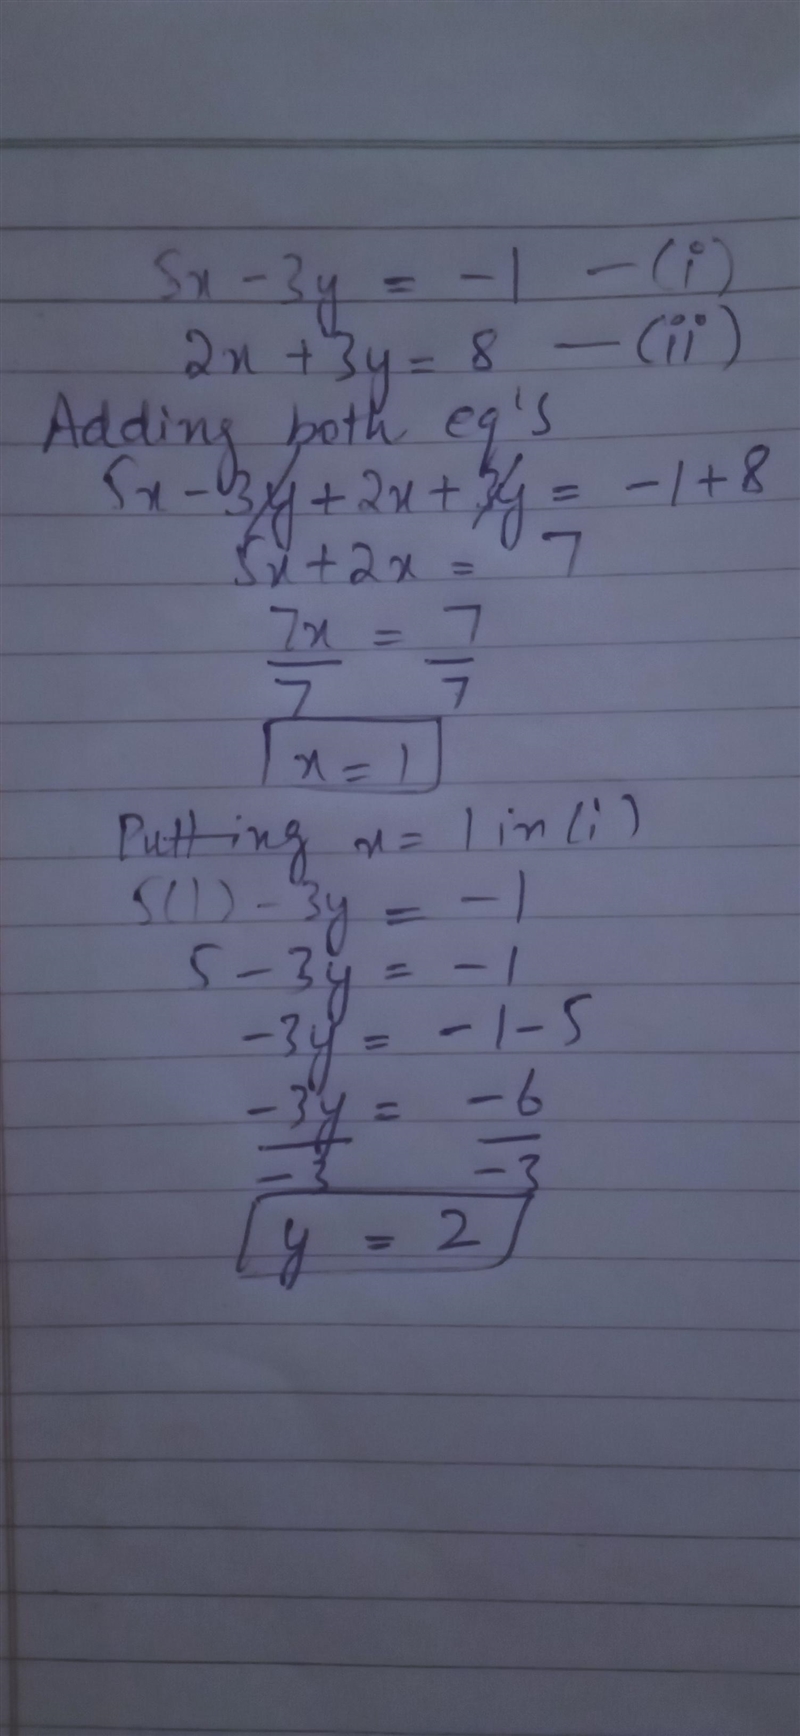 5x - 3y = -1 — (i)
2x + 3y = 8 — (ii)
Adding both eq's
5x - 3y + 2x + 3y = -1 + 8
5x + 2x = 7
7x/7 = 7/7
x = 1
Putting x = 1 in (i)
5(1) - 3y = -1
5 - 3y = -1
-3y = -1 - 5
-3y/-3 = -6/-3
y = 2